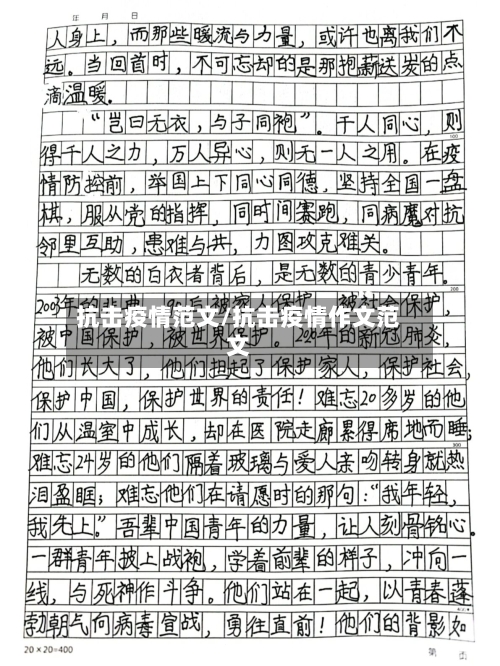 年 月 日
人身上，而那些暖流与力量，或许也离我们不
远。当回首时，不可忘却的是那抱薪送炭的点
滴温暖。
“岂曰无衣，与子同袍”。千人同心，则
得千人之力，万人异心，则无一人之用。在疫
情防控前，举国上下同心同德，坚持全国一盘
棋，服从党的指挥，同时间赛跑，同病魔对抗
邻里互助，患难与共，力图攻克难关。
无数的白衣者背后，是无数的青少年。
2003年的非典，90后被家人保护，被社会保护，
抗击疫情范文/抗击疫情作文范
文
被中国保护，被世界保护。年的新冠肺炎，
他们长大了，他们担起了保护家人，保护社会，
保护中国，保护世界的责任！难忘20多岁的他
们从温室中成长，却在医院走廊累得席地而睡；
难忘24岁的他们隔着玻璃与爱人亲吻转身就热
泪盈眶；难忘他们在请愿时的那句：“我年轻，
我先上。”吾辈中国青年的力量，让人刻骨铭心。
一群青年披上战袍，学着前辈的样子，冲向一
线，与死神作斗争。他们站在一起，以青春蓬
勃朝气向病毒宣战，勇往直前！他们的背影如
20×20=400
第 页